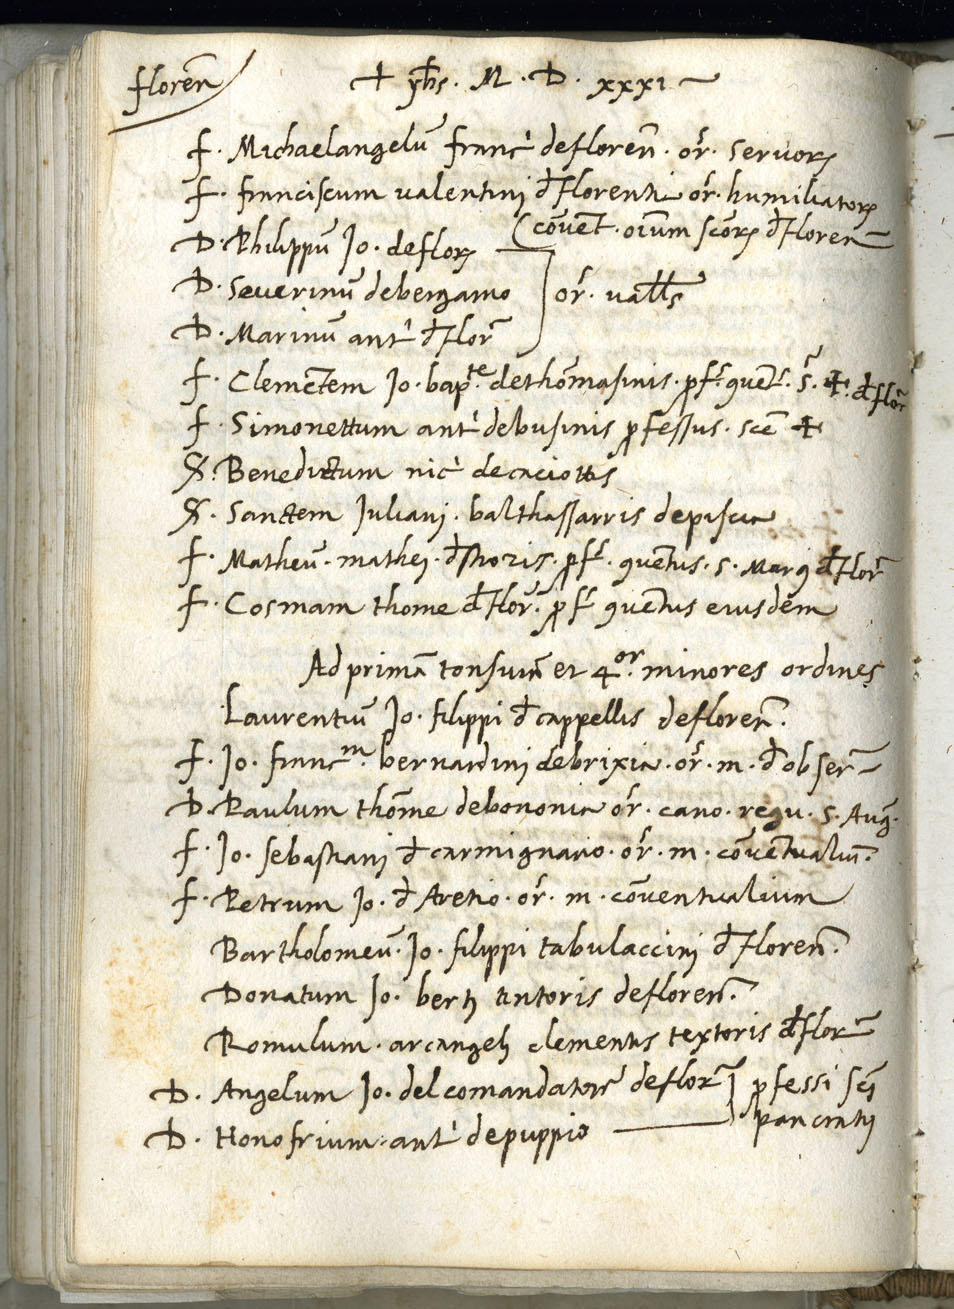 floren̄
+ yh̄s. M. D. xxxi
f. Michaelangelū franc̄ de floren̄. or̄. servorꝝ
f. franciscum valentini d̄ florenti or̄. humiliatorꝝ
(cōuēt. oīum scōrꝝ d̄ floren̄
D. Philippū Jo. de florꝝ
D. Seuerinū de bergamo ] or̄. vall̄s
D. Marinū ant̄ d̄ flor̄
f. Clemētem Jo. bap.te de thōmasinis. ꝓf̄. ꝯuēt. s̄. ✠. d̄ flor̄
f. Simonettum ant̄ de businis ꝓfessus. scē ✠
X. Benedictum nic̄ de caciottis
X. Sanctem Juliani. balthassarris de piscia
f. Matheū. mathei. d̄ storis. ꝓf̄. ꝯuētus. s. Marci d̄ flor̄
f. Cosmam thome d̄ flor̄. ꝓf̄ ꝯuētus eiusdem
Ad primā tonsurā et 4.or minores ordines
Laurentiū Jo. filippi d̄ cappellis de floren̄.
f. Jo. franc.m bernardini de brixia. or̄. m. d̄ obser̄
D. Paulum thōme de bononia or̄. cano. regu. s. Auḡ.
f. Jo. sebastiani d̄ carmignano. or̄. m. cōuētualiū.
f. Petrum Jo. d̄ Aretio. or̄. m. cōuentualium
Bartholomeū. Jo. filippi tabulaccini d̄ floren̄.
Donatum Jo. berti tintoris de floren̄.
Romulum. arcangeli clementis textoris d̄ flor̄
D. Angelum Jo. del comandator̄ de flor̄ ] ꝓfessi scī
D. Honofrium. ant̄ de puppio pancratij